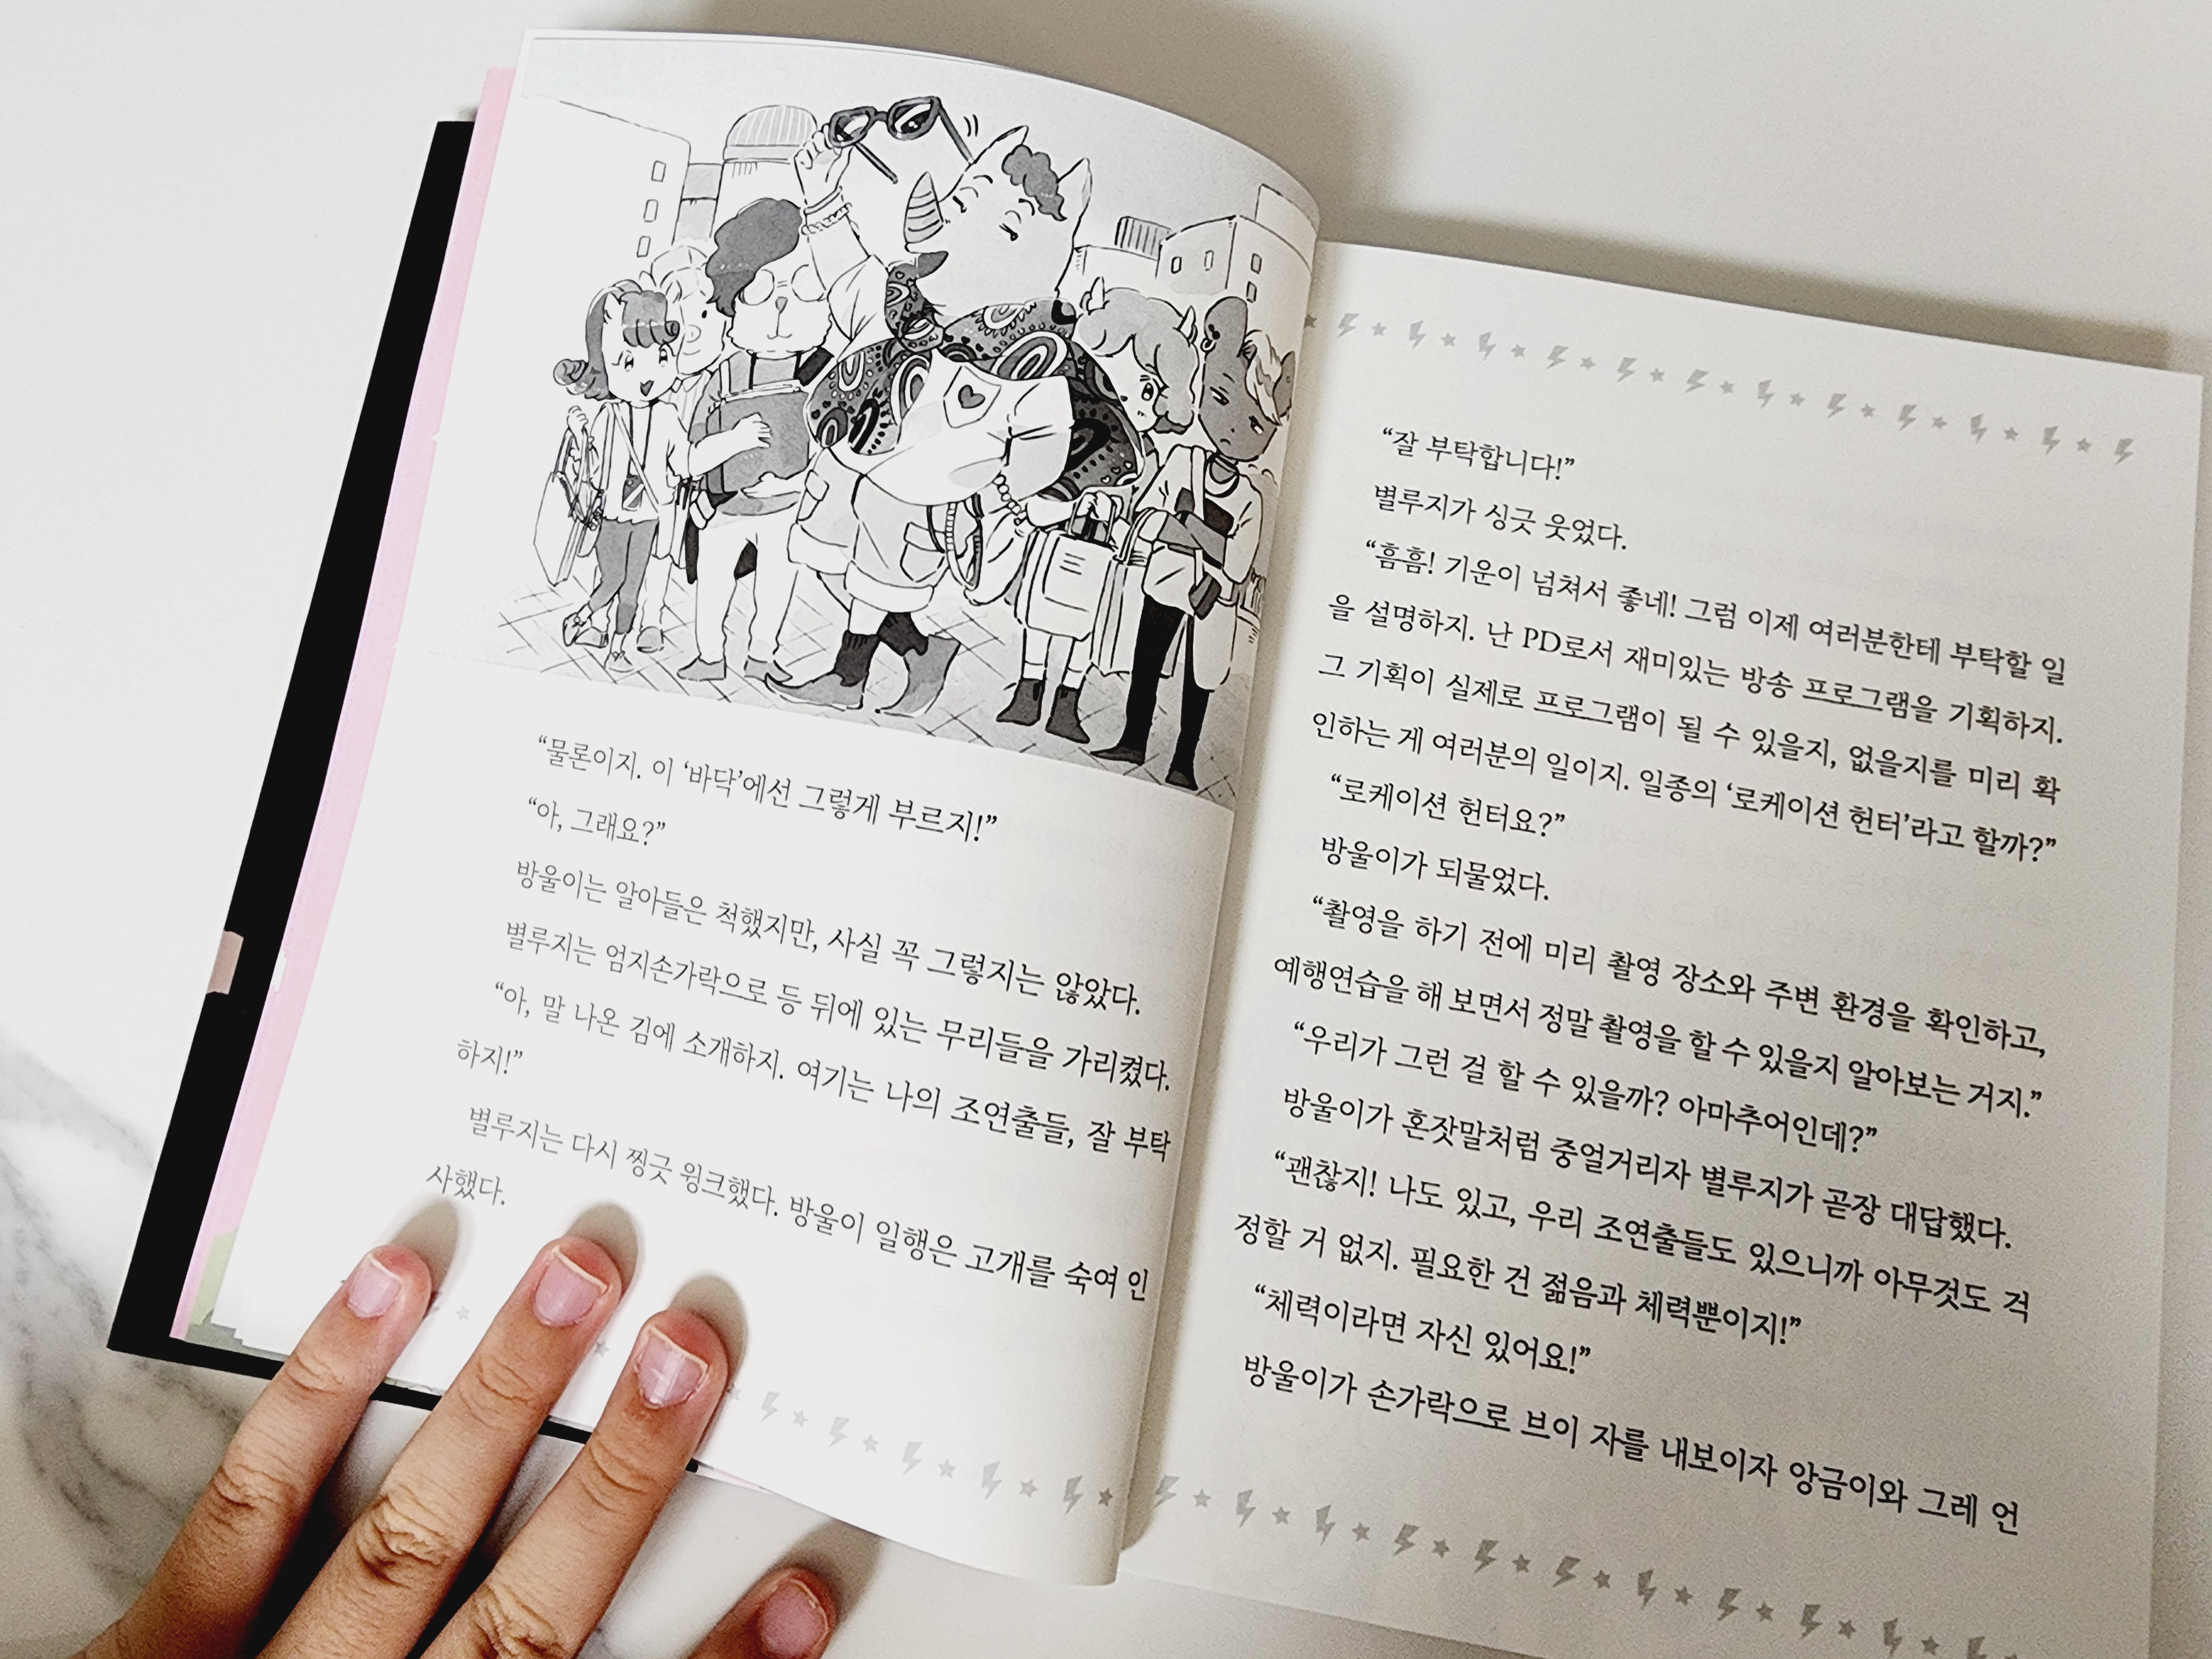 “물론이지. 이 ‘바닥’에선 그렇게 부르지!”
“아, 그래요?”
방울이는 알아들은 척했지만, 사실 꼭 그렇지는 않았다.
별루지는 엄지손가락으로 등 뒤에 있는 무리들을 가리켰다.
“아, 말 나온 김에 소개하지. 여기는 나의 조연출들, 잘 부탁
하지!”
별루지는 다시 찡긋 윙크했다. 방울이 일행은 고개를 숙여 인
사했다.
“잘 부탁합니다!”
별루지가 싱긋 웃었다.
“흠흠! 기운이 넘쳐서 좋네! 그럼 이제 여러분한테 부탁할 일
을 설명하지. 난 PD로서 재미있는 방송 프로그램을 기획하지.
그 기획이 실제로 프로그램이 될 수 있을지, 없을지를 미리 확
인하는 게 여러분의 일이지. 일종의 ‘로케이션 헌터’라고 할까?”
“로케이션 헌터요?”
방울이가 되물었다.
“촬영을 하기 전에 미리 촬영 장소와 주변 환경을 확인하고,
예행연습을 해 보면서 정말 촬영을 할 수 있을지 알아보는 거지.”
“우리가 그런 걸 할 수 있을까? 아마추어인데?”
방울이가 혼잣말처럼 중얼거리자 별루지가 곧장 대답했다.
“괜찮지! 나도 있고, 우리 조연출들도 있으니까 아무것도 걱
정할 거 없지. 필요한 건 젊음과 체력뿐이지!”
“체력이라면 자신 있어요!”
방울이가 손가락으로 브이 자를 내보이자 앙금이와 그레 언